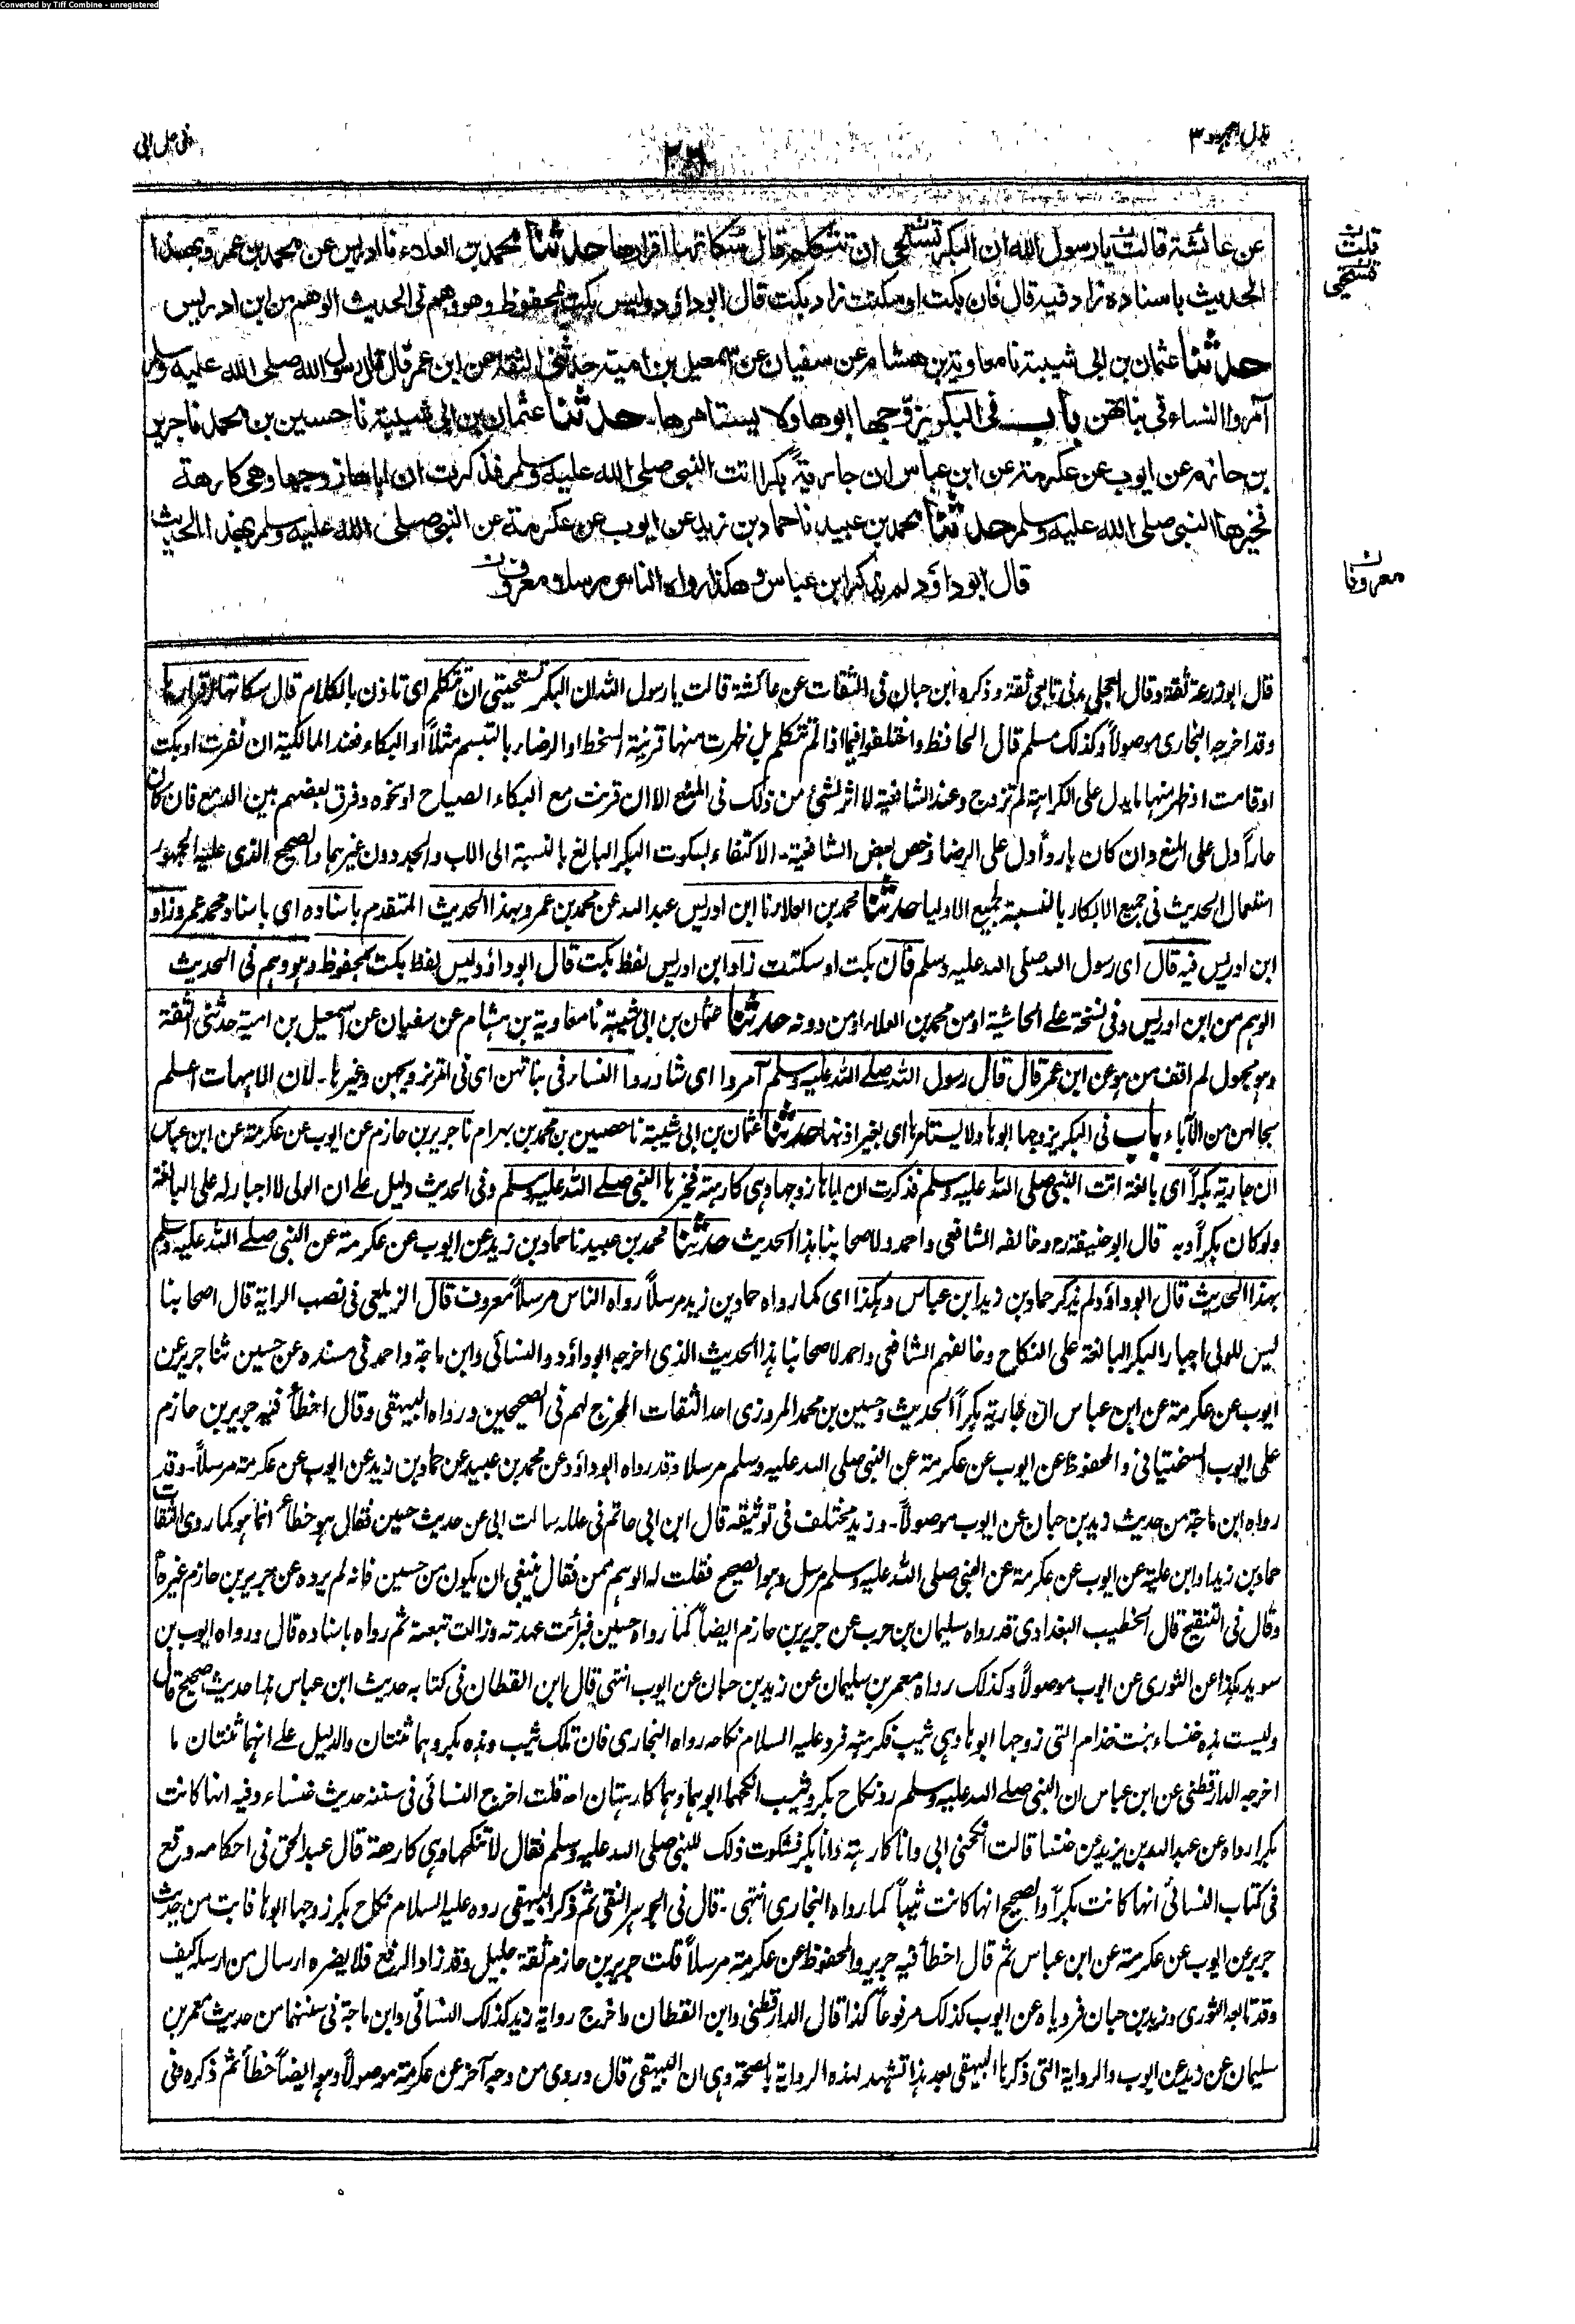 Converted by Tiff Combine - unregistered
بذل المجهود ٣
٢٦
عن عائشة قالت يا رسول الله ان البكر تستحي ان تتكلم قال سكاتها اقرارها حدثنا محمد بن العلاء نا ادريس عن محمد بن عمرو بهذا
قلت
تستحي
الحديث باسناده زاد فيه قال فان بكت او سكتت زاد بكت قال ابو داؤد وليس بكت بمحفوظ وهو وهم في الحديث الوهم من ابن ادريس
حدثنا عثمان بن ابي شيبة نا معاوية بن هشام عن سفيان عن اسمعيل بن امية حدثني الثقة عن ابن عمر قال قال رسول الله صلى الله عليه وسلم
آمروا النساء في بناتهن باب في البكر يزوجها ابوها ولا يستامرها۔ حدثنا عثمان بن ابي شيبة نا حسين بن محمد نا جرير
بن حازم عن ايوب عن عكرمة عن ابن عباس ان جارية بكرا اتت النبي صلى الله عليه وسلم فذكرت ان اباها زوجها وهي كارهة
فخيرها النبي صلى الله عليه وسلم حدثنا محمد بن عبيد نا حماد بن زيد عن ايوب عن عكرمة عن النبي صلى الله عليه وسلم بهذا الحديث
قال ابو داؤد لم يذكر ابن عباس وهكذا رواه الناس مرسلا معروف
معروفا
قال ابو زرعة ثقة وقال العجلي مدني تابعي ثقة وذكره ابن حبان في الثقات عن عائشة قالت يا رسول الله ان البكر تستحيي ان تتكلم اي تاذن بالكلام قال سكاتها اقرارها
وقد اخرجه البخاري موصولاً وكذلك مسلم قال الحافظ واختلفوا فيما اذا لم تتكلم بل ظهرت منها قرينة السخط او الرضاء بالتبسم مثلاً او البكاء فعند المالكية ان نفرت او بكت
او قامت او ظهر منها ما يدل على الكراهة لم تزوج وعند الشافعية لا اثر لشئ من ذلك في المنع الا ان قرنت مع البكاء الصياح او نحوه وفرق بعضهم بين الدمع فان كان
حاراً دل على المنع وان كان بارداً دل على الرضا وخص بعض الشافعية۔ الاكتفاء بسكوت البكر البالغ بالنسبة الى الاب والجد دون غيرهما والصحيح الذي عليه الجمهور
استعمال الحديث في جميع الابكار بالنسبة لجميع الاوليا حدثنا محمد بن العلاء نا ابن ادريس عبد الله عن محمد بن عمرو بهذا الحديث المتقدم باسناده اي باسناد محمد عمرو زاد
ابن ادريس فيه قال اي رسول الله صلى الله عليه وسلم فان بكت او سكتت زاد ابن ادريس لفظ بكت قال ابو داؤد وليس لفظ بكت بمحفوظ وهو وهم في الحديث
الوهم من ابن ادريس وفي نسخة على الحاشية او من محمد بن العلاء او من دونه حدثنا عثمان بن ابي شيبة نا معاوية بن هشام عن سفيان عن اسمعيل بن امية حدثني الثقة
وهو مجهول لم اقف من هو عن ابن عمر قال قال رسول الله صلى الله عليه وسلم آمروا اي شاوروا النساء في بناتهن اي في تزويجهن وغيرها۔ لان الامهات اعلم
بحالهن من الآباء باب في البكر يزوجها ابوها ولا يستامرها اي بغير اذنها حدثنا عثمان بن ابي شيبة نا حسين بن محمد بن بهرام نا جرير بن حازم عن ايوب عن عكرمة عن ابن عباس
ان جارية بكراً اي بالغة اتت النبي صلى الله عليه وسلم فذكرت ان اباها زوجها وهي كارهة فخيرها النبي صلى الله عليه وسلم وفي الحديث دليل على ان الولي لا اجبار له على البالغة
ولو كان بكراً وبه قال ابو حنيفة رح وخالفه الشافعي واحمد ولاصحابنا بهذا الحديث حدثنا محمد بن عبيد نا حماد بن زيد عن ايوب عن عكرمة عن النبي صلى الله عليه وسلم
بهذا الحديث قال ابو داؤد ولم يذكر حماد بن زيد ابن عباس وهكذا اي كما رواه حماد بن زيد مرسلاً رواه الناس مرسلاً معروف قال الزيلعي في نصب الراية قال اصحابنا
ليس للولي اجبار البكر البالغة على النكاح وخالفهم الشافعي واحمد لاصحابنا هذا الحديث الذي اخرجه ابو داؤد والنسائي وابن ماجة واحمد في مسنده عن حسين ثنا جرير عن
ايوب عن عكرمة عن ابن عباس ان جارية بكراً الحديث وحسين بن محمد المروزي احد الثقات المخرج لهم في الصحيحين ورواه البيهقي وقال اخطأ فيه جرير بن حازم
على ايوب السختياني والمحفوظ عن ايوب عن عكرمة عن النبي صلى الله عليه وسلم مرسلا وقد رواه ابو داؤد عن محمد بن عبيد عن حماد بن زيد عن ايوب عن عكرمة مرسلاً۔ وقد
رواه ابن ماجة من حديث زيد بن حبان عن ايوب موصولاً۔ وزيد مختلف في توثيقه قال ابن ابي حاتم في علله سالت ابي عن حديث حسين فقال هو خطأ انما هو كما روى الثقات
حماد بن زيد وابن علية عن ايوب عن عكرمة عن النبي صلى الله عليه وسلم مرسل وهو الصحيح فقلت له الوهم ممن فقال ينبغي ان يكون من حسين فانه لم يروه عن جرير بن حازم غيره اه
وقال في التنقيح قال الخطيب البغدادي قد رواه سليمان بن حرب عن جرير بن حازم ايضاً كما رواه حسين فبرأت عهدته وزالت تبعته ثم رواه باسناده قال ورواه ايوب بن
سويد هكذا عن الثوري عن ايوب موصولاً وكذلك رواه معمر بن سليمان عن زيد بن حبان عن ايوب انتهى قال ابن القطان في كتابه حديث ابن عباس هذا حديث صحيح قال
وليست هذه خنساء بنت خذام التي زوجها ابوها وهي ثيب فكرهته فرد عليه السلام نكاحه رواه البخاري فان تلك ثيب وهذه بكر وهما ثنتان والدليل على انهما ثنتان ما
اخرجه الدارقطني عن ابن عباس ان النبي صلى الله عليه وسلم رد نكاح بكر وثيب انكحهما ابوهما وهما كارهتان اه قلت اخرج النسائي في سننه حديث خنساء وفيه انها كانت
بكرا رواه عن عبد الله بن يزيد عن خنسا قالت انكحني ابي وانا كارهة وانا بكر فشكوت ذلك للنبي صلى الله عليه وسلم فقال لا تنكحها وهي كارهة قال عبد الحق في احكامه وقع
في كتاب النسائي انها كانت بكراً والصحيح انها كانت ثيباً كما رواه البخاري انتهى۔ قال في الجوهر النقي ثم ذكر البيهقي رده عليه السلام نكاح بكر زوجها ابوها ثابت من حديث
جرير عن ايوب عن عكرمة عن ابن عباس ثم قال اخطأ فيه جرير والمحفوظ عن عكرمة مرسلاً قلت جرير بن حازم ثقة جليل وقد زاد الرفع فلا يضره ارسال من ارسله كيف
وقد تابعه الثوري وزيد بن حبان فروياه عن ايوب كذلك مرفوعاً كذا قال الدارقطني وابن القطان واخرج رواية زيد كذلك النسائي وابن ماجة في سننهما من حديث معمر بن
سليمان عن زيد عن ايوب والرواية التي ذكرها البيهقي بعد هذا تشهد لهذه الرواية بالصحة وهي ان البيهقي قال وروي من وجه آخر عن عكرمة موصولاً وهو ايضاً خطأ ثم ذكره في